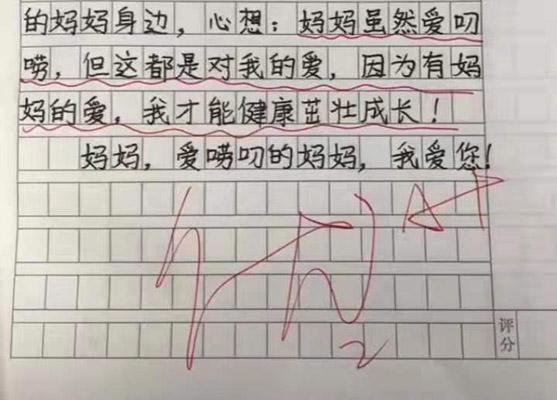 的妈妈身边，心想：妈妈虽然爱叨
唠，但这都是对我的爱，因为有妈
妈的爱，我才能健康茁壮成长！
妈妈，爱唠叨的妈妈，我爱您！
A+
2
评分